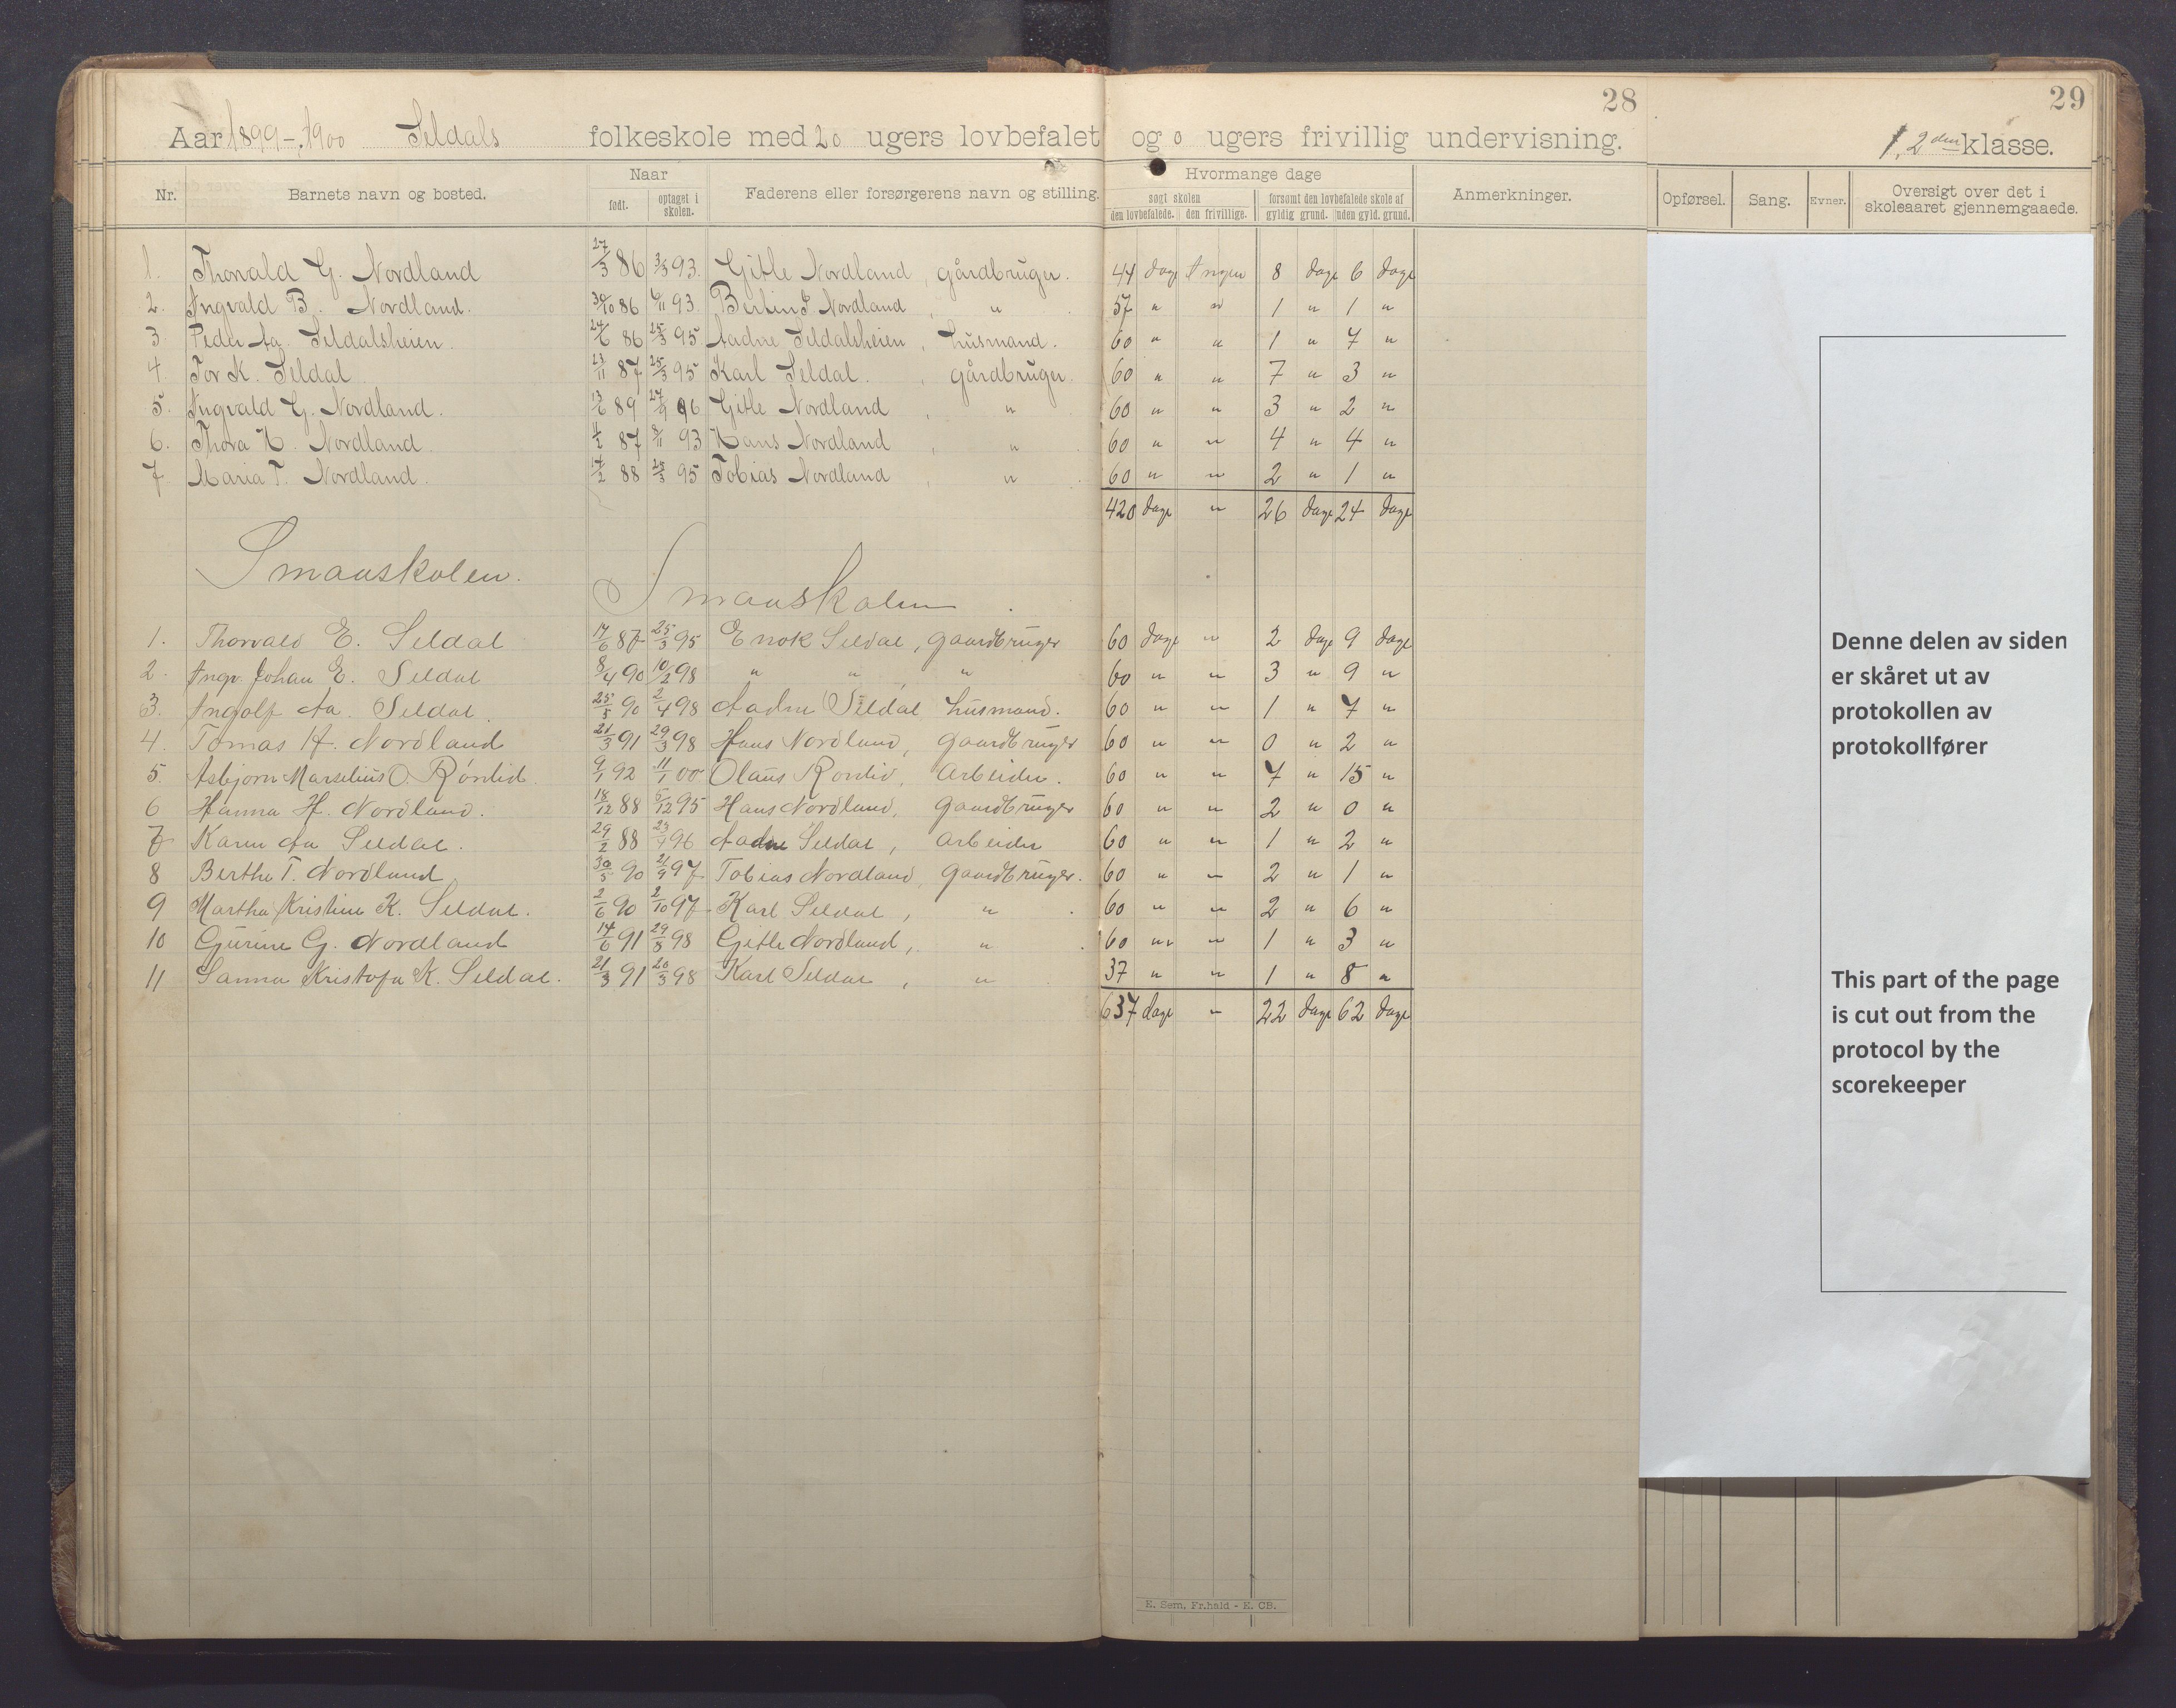 28
29
Aar 1899-1900 Seldals folkeskole med 20 ugers lovbefalet og 0 ugers frivillig undervisning. 1, 2den klasse.
Nr. Barnets navn og bosted. Naar født. optaget i skolen. Faderens eller forsørgerens navn og stilling. Hvormange dage søgt skolen den lovbefalede. den frivillige. forsømt den lovbefalede skole af gyldig grund. uden gyld. grund. Anmerkninger. Opførsel. Sang. Evner. Oversigt over det i skoleaaret gjennemgaaede.
1. Thorvald G. Nordland 27/3 86 3/3 93. Gitle Nordland, gårdbruger. 44 dage Ingen 8 dage 6 dage
2. Ingvald B. Nordland. 30/10 86 6/11 93 Bertin I. Nordland, " 57 " " 1 " 1 "
3. Peder Aa. Seldalsheien. 24/6 86 25/3 95 Aadne Seldalsheien, husmand. 60 " " 1 " 7 "
4. Tor K. Seldal 23/11 87 25/3 95 Karl Seldal, gårdbruger. 60 " " 7 " 3 "
5. Ingvald G. Nordland. 13/6 89 96 Gitle Nordland, " 60 " " 3 " 2 "
6. Thora H. Nordland. 4/2 87 8/11 93 Hans Nordland, " 60 " " 4 " 4 "
7. Maria T. Nordland. 14/2 88 25/3 95 Tobias Nordland, " 60 " " 2 " 1 "
420 dage " 26 dage 24 dage
Smaaskolen. Smaaskolen.
1. Thorvald E. Seldal 17/6 87 25/3 95 Enok Seldal, gaardbruger 60 dage " 2 dage 9 dage
2. Ingv. Johan E. Seldal 8/4 90 10/2 98 " " , " 60 " " 3 " 9 "
3. Ingolf Aa. Seldal. 25/5 90 2/4 98 Aadne Seldal husmand. 60 " " 1 " 7 "
4. Tomas H. Nordland 21/3 91 29/3 98 Hans Nordland, gaardbruger 60 " " 0 " 2 "
5. Asbjørn Marselius O. Røndlid. 9/1 92 11/1 00 Olaus Rønlid, Arbeider. 60 " " 7 " 15 "
6 Hanna H. Nordland. 18/12 88 5/12 95 Hans Nordland, gaardbruger 60 " " 2 " 0 "
7 Karen Aa Seldal. 29/2 88 23/9 96 Aadne Seldal, arbeider 60 " " 1 " 2 "
8 Berthe T. Nordland 30/5 90 21/9 97 Tobias Nordland, gaardbruger. 60 " " 2 " 1 "
9 Martha Kristine K. Seldal. 2/6 90 2/10 97 Karl Seldal, " 60 " " 2 " 6 "
10 Gurine G. Nordland 14/6 91 29/8 98 Gitle Nordland, " 60 " " 1 " 3 "
11 Sanna Kristofa K. Seldal. 21/3 91 20/3 98 Karl Seldal, " 37 " " 1 " 8 "
637 dage " 22 dage 62 dage
Denne delen av siden
er skåret ut av
protokollen av
protokollfører
This part of the page
is cut out from the
protocol by the
scorekeeper
E. Sem, Fr.hald - E. CB.